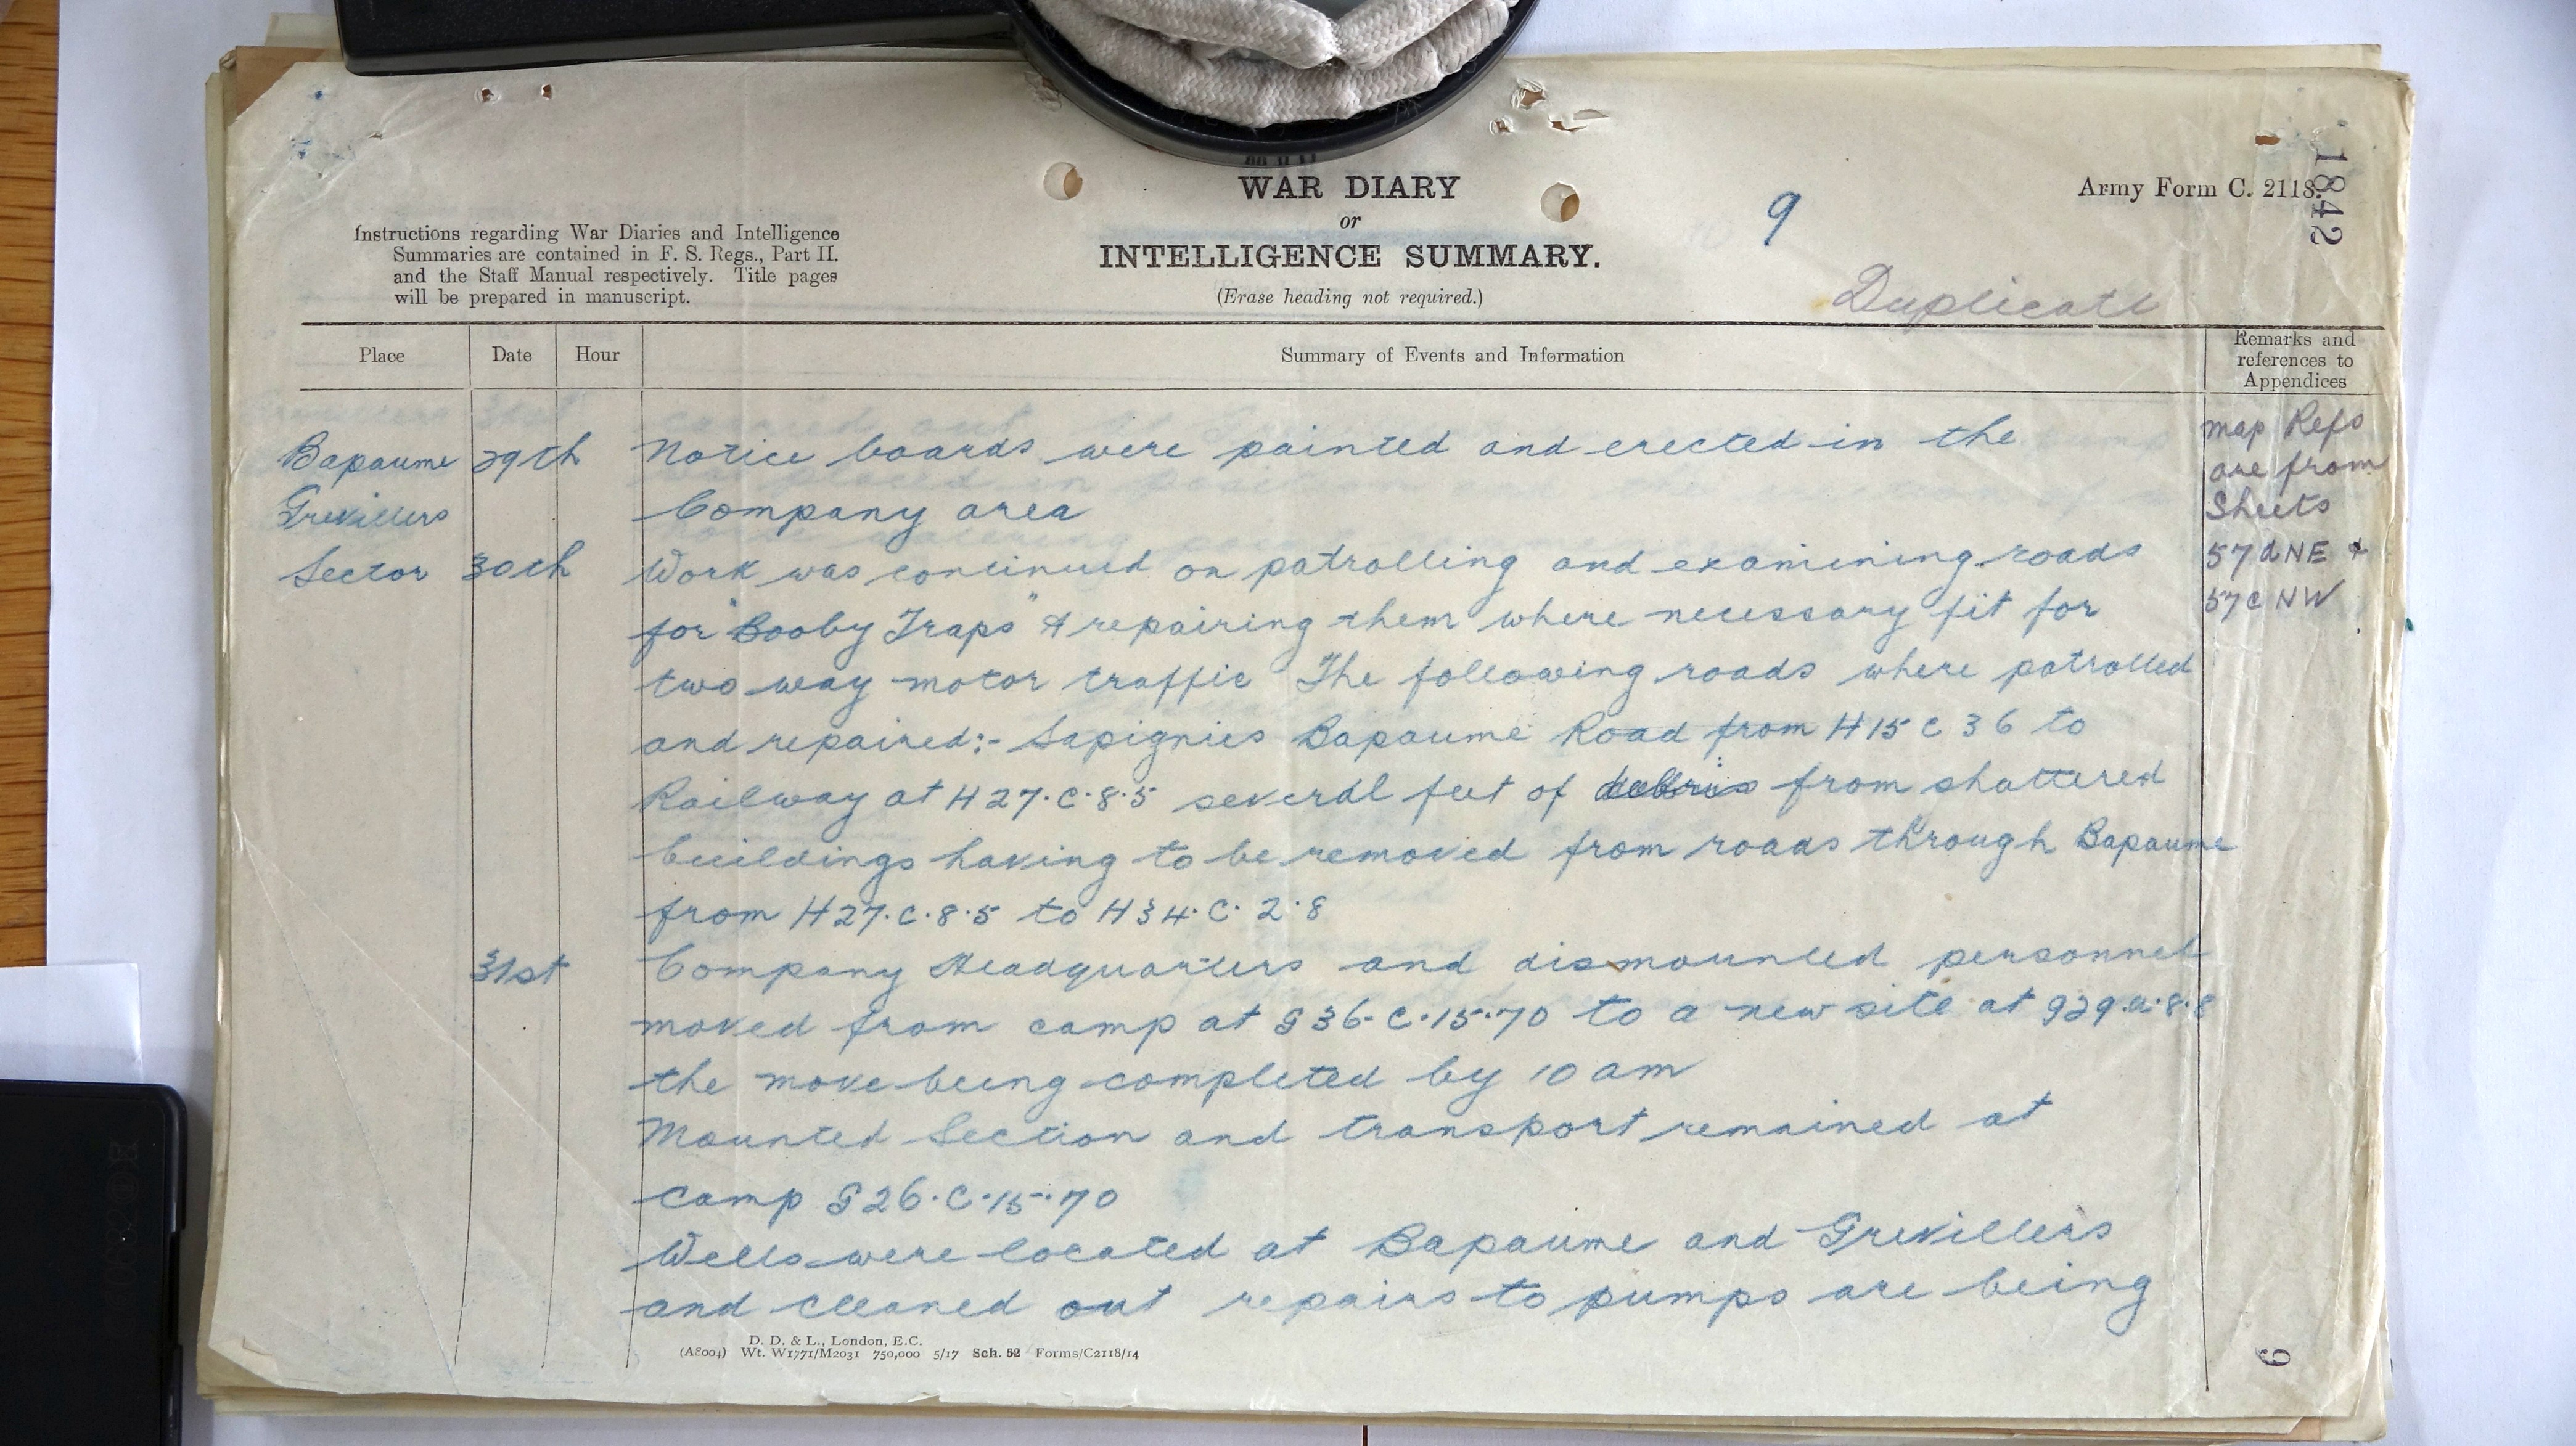 WAR DIARY
or
INTELLIGENCE SUMMARY.
(Erase heading not required.)
9
Army Form C. 2118.
1842
Instructions regarding War Diaries and Intelligence
Summaries are contained in F. S. Regs., Part II.
and the Staff Manual respectively. Title pages
will be prepared in manuscript.
Duplicate
Place
Date
Hour
Summary of Events and Information
Remarks and
references to
Appendices
Map Refs
are from
Sheets
57d NE &
57c NW
Bapaume 29th Notice boards were painted and erected in the
Grevillers Company area
Sector 30th Work was continued on patrolling and examining roads
for "Booby Traps" & repairing them where necessary fit for
two way motor traffic The following roads where patrolled
and repaired:- Sapignies Bapaume Road from H15 C 36 to
Railway at H27.C.8.5 several feet of debris from shattered
buildings having to be removed from roads through Bapaume
from H27.C.8.5 to H34.C.2.8
31st Company Headquarters and dismounted personnel
moved from camp at G36.C.15.70 to a new site at G29.a.8.8
the move being completed by 10 am
Mounted Section and transport remained at
camp G26.C.15.70
Wells were located at Bapaume and Grevillers
and cleaned out repairs to pumps are being
D. D. & L., London, E.C.
(A8004) Wt. W1771/M2031 750,000 5/17 Sch. 52 Forms/C2118/14
9